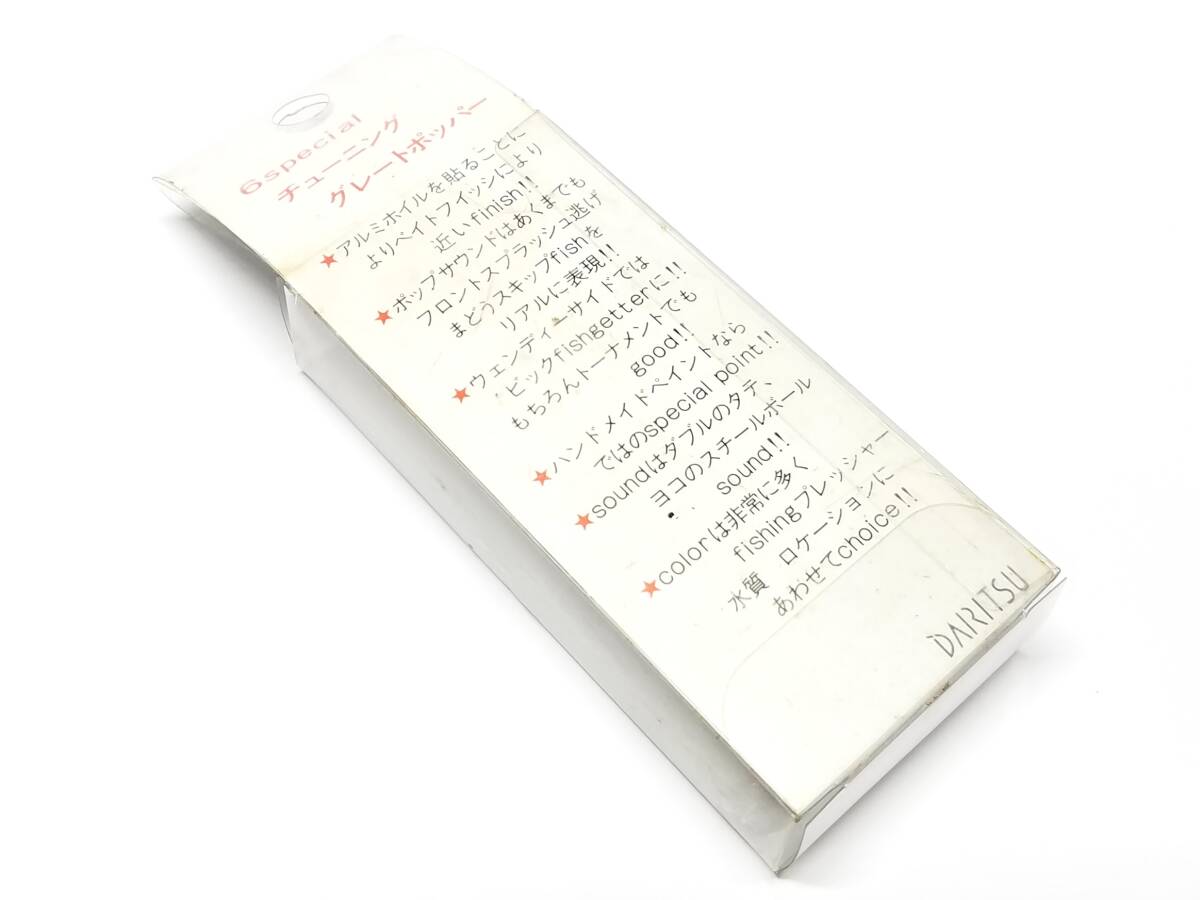 6special
チューニング
グレートポッパー
★アルミホイルを貼ることに
よりベイトフイッシにより
近いfinish!!
★ポップサウンドはあくまでも
フロントスプラッシュ逃げ
まどうスキップfishを
リアルに表現!!
★ウェンディーサイドでは
ビックfishgetterに!!
もちろんトーナメントでも
good!!
★ハンドメイドペイントなら
ではのspecial point!!
★soundはダブルのタテ、
ヨコのスチールボール
sound!!
★colorは非常に多く
fishingプレッシャー
水質 ロケーションに
あわせてchoice!!
DARITSU